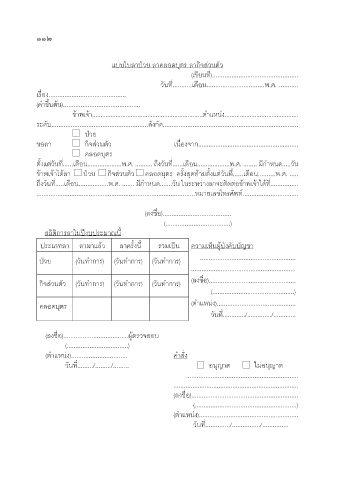 ๑๑๒
แบบใบลาป่วย ลาคลอดบุตร ลากิจส่วนตัว
(เขียนที่)..................................................
วันที่...........เดือน..................................พ.ศ. ............
เรื่อง.............................................
(คำขึ้นต้น).............................................
ข้าพเจ้า................................................................ตำแหน่ง..........................................
ระดับ........................................................สังกัด..............................................................................
☐ ป่วย
ขอลา ☐ กิจส่วนตัว เนื่องจาก.........................................................
☐ คลอดบุตร
ตั้งแต่วันที่......เดือน....................พ.ศ. ......... ถึงวันที่......เดือน...................พ.ศ. ......... มีกำหนด.....วัน
ข้าพเจ้าได้ลา ☐ ป่วย ☐ กิจส่วนตัว ☐ คลอดบุตร ครั้งสุดท้ายตั้งแต่วันที่......เดือน..........พ.ศ. .....
ถึงวันที่.....เดือน.................พ.ศ. ........ มีกำหนด.......วัน ในระหว่างลาจะติดต่อข้าพเจ้าได้ที่................
...........................................................................................หมายเลขโทรศัพท์................................
(ลงชื่อ)........................................
(......................................)
สถิติการลาในปีงบประมาณนี้
ประเภทลา ลามาแล้ว ลาครั้งนี้ รวมเป็น ความเห็นผู้บังคับบัญชา
ป่วย (วันทำการ) (วันทำการ) (วันทำการ) .......................................................
.............................................................
กิจส่วนตัว (วันทำการ) (วันทำการ) (วันทำการ) (ลงชื่อ)..................................................
(................................................)
คลอดบุตร (ตำแหน่ง)..............................................
วันที่............../............../..............
(ลงชื่อ).....................................ผู้ตรวจสอบ
(....................................)
(ตำแหน่ง)................................ คำสั่ง
วันที่........./........./......... ☐ อนุญาต ☐ ไม่อนุญาต
................................................................
.......................................................................
(ลงชื่อ).............................................................
(............................................................)
(ตำแหน่ง)..........................................................
วันที่.............../.............../...............